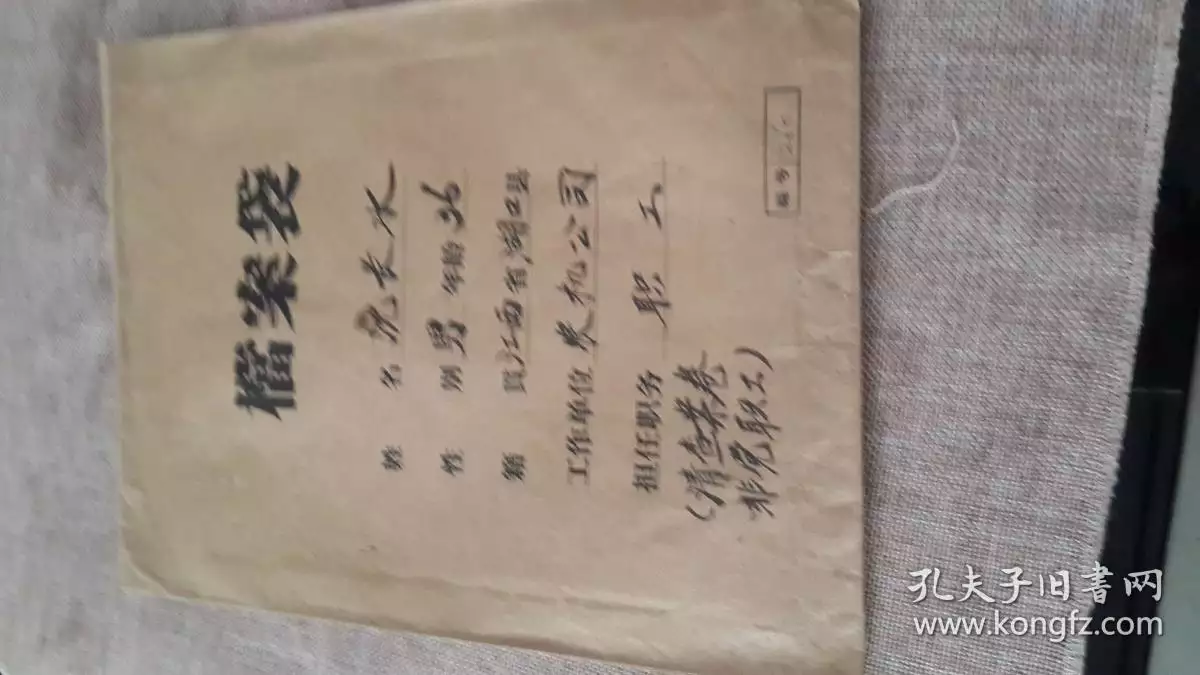 檔案袋
姓名 况长水
性别 男 年龄 36
籍贯 江西省湖口县
工作单位 农机公司
担任职务 职工
(清查案卷
非党职工)
编号
孔夫子旧書网
www.kongfz.com